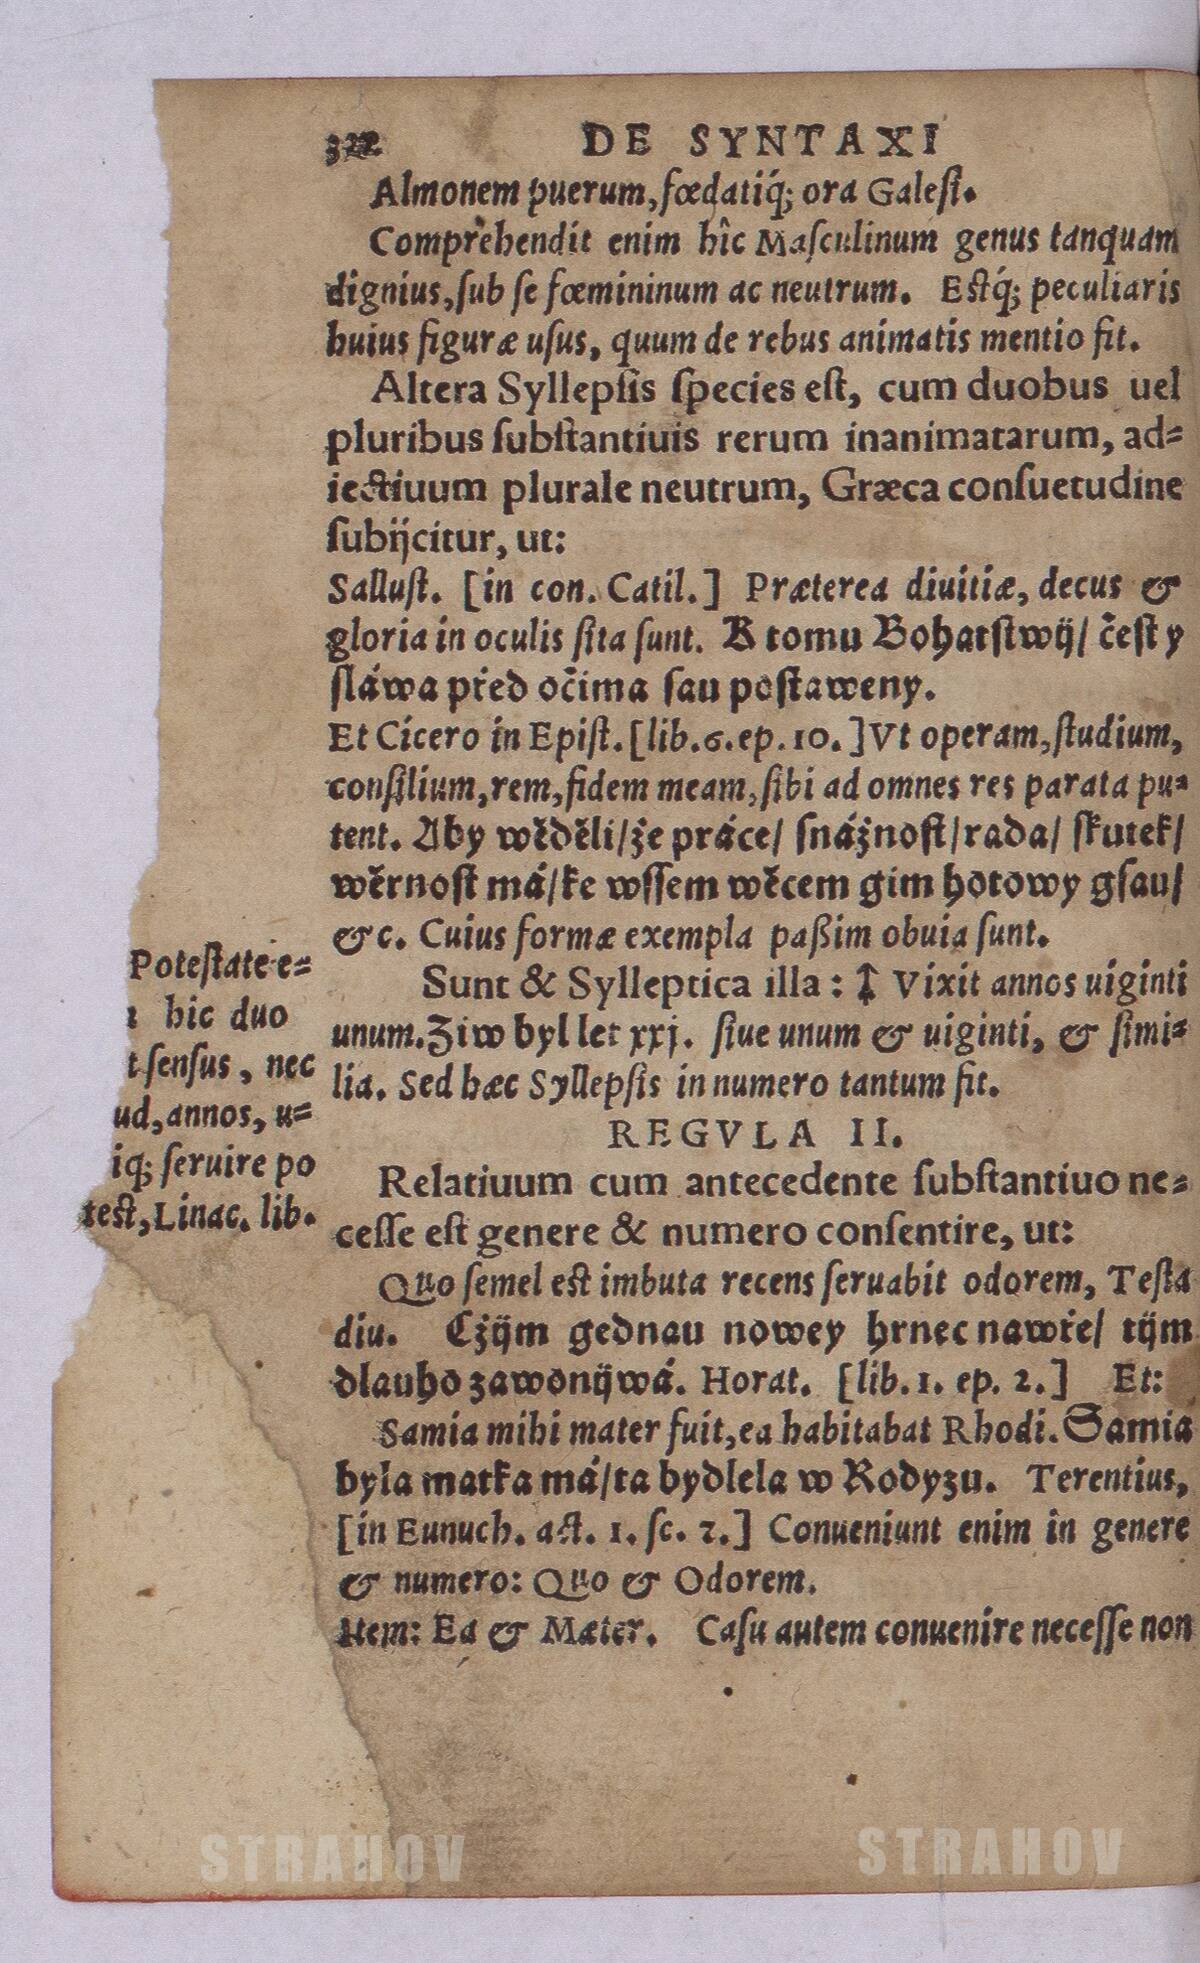 322
DE SYNTAXI
Almonem puerum, fœdatiq́; ora Galeſi.
Comprehendit enim hîc Maſculinum genus tanquam
dignius, ſub ſe fœmininum ac neutrum. Eſtq́; peculiaris
huius figuræ uſus, quum de rebus animatis mentio fit.
Altera Syllepſis ſpecies eſt, cum duobus uel
pluribus ſubſtantiuis rerum inanimatarum, ad=
iectiuum plurale neutrum, Græca conſuetudine
ſubijcitur, ut:
Salluſt. [in con. Catil.] Præterea diuitiæ, decus &
gloria in oculis ſita ſunt. K tomu Bohatſtwij/ čeſt y
ſláwa před očima ſau poſtaweny.
Et Cicero in Epiſt. [lib. 6. ep. 10.] Vt operam, ſtudium,
conſilium, rem, fidem meam, ſibi ad omnes res parata pu=
tent. Aby wěděli/ že práce/ ſnážnoſt/ rada/ ſkutek/
wěrnoſt má/ ke wſſem wěcem gim hotowy gſau/
&c. Cuius formæ exempla paßim obuia ſunt.
Sunt & Sylleptica illa: ↨ Vixit annos uiginti
unum. Žiw byl let xxj. ſiue unum & uiginti, & ſimi=
lia. Sed hæc Syllepſis in numero tantum fit.
Poteſtate e=
hic duo
t ſenſus, nec
ud, annos, u=
iq; ſeruire po
teſt, Linac. lib.
REGVLA II.
Relatiuum cum antecedente ſubſtantiuo ne=
ceſſe eſt genere & numero conſentire, ut:
Quo ſemel eſt imbuta recens ſeruabit odorem, Teſta
diu. Cžijm gednau nowey hrnec nawře/ tijm
dlauho zawonijwá. Horat. [lib. 1. ep. 2.] Et:
Samia mihi mater fuit, ea habitabat Rhodi. Samia
byla matka má/ ta bydlela w Rodyzu. Terentius,
[in Eunuch. act. 1. ſc. 2.] Conueniunt enim in genere
& numero: Quo & Odorem.
Item: Ea & Mater. Caſu autem conuenire neceſſe non
STRAHOV
STRAHOV